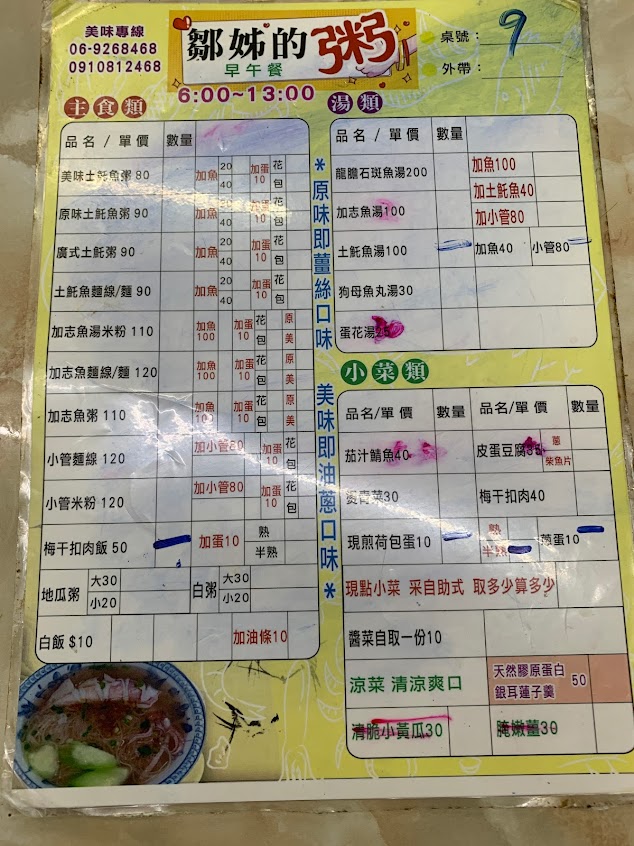 美味專線
06-9268468
0910812468
鄒姊的粥
早午餐
6:00~13:00
桌號： 9
外帶：
主食類
品名 / 單價 數量
美味土魠魚粥 80 加魚 20 40 加蛋 10 花 包
原味土魠魚粥 90 加魚 20 40 加蛋 10 花 包
廣式土魠粥 90 加魚 20 40 加蛋 10 花 包
土魠魚麵線/麵 90 加魚 20 40 加蛋 10 花 包
加志魚湯米粉 110 加魚 100 加蛋 10 花 包 原 美
加志魚麵線/麵 120 加魚 100 加蛋 10 花 包 原 美
加志魚粥 110 加魚 100 加蛋 10 花 包 原 美
小管麵線 120 加小管80 加蛋 10 花 包
小管米粉 120 加小管80 加蛋 10 花 包
梅干扣肉飯 50 加蛋10 熟 半熟
地瓜粥 大30 小20 白粥 大30 小20
白飯 $10 加油條10
*原味即薑絲口味 美味即油蔥口味*
湯類
品名 / 單價 數量
龍膽石斑魚湯200 加魚100
加土魠魚40
加志魚湯100 加小管80
土魠魚湯100 加魚40 小管80
狗母魚丸湯30
蛋花湯25
小菜類
品名/單價 數量 品名/單價 數量
茄汁鯖魚40 皮蛋豆腐35 蔥 柴魚片
燙青菜30 梅干扣肉40
現煎荷包蛋10 熟 半熟 煎蛋10
現點小菜 采自助式 取多少算多少
醬菜自取一份10
涼菜 清涼爽口 天然膠原蛋白
銀耳蓮子羹 50
清脆小黃瓜30 腌嫩薑30